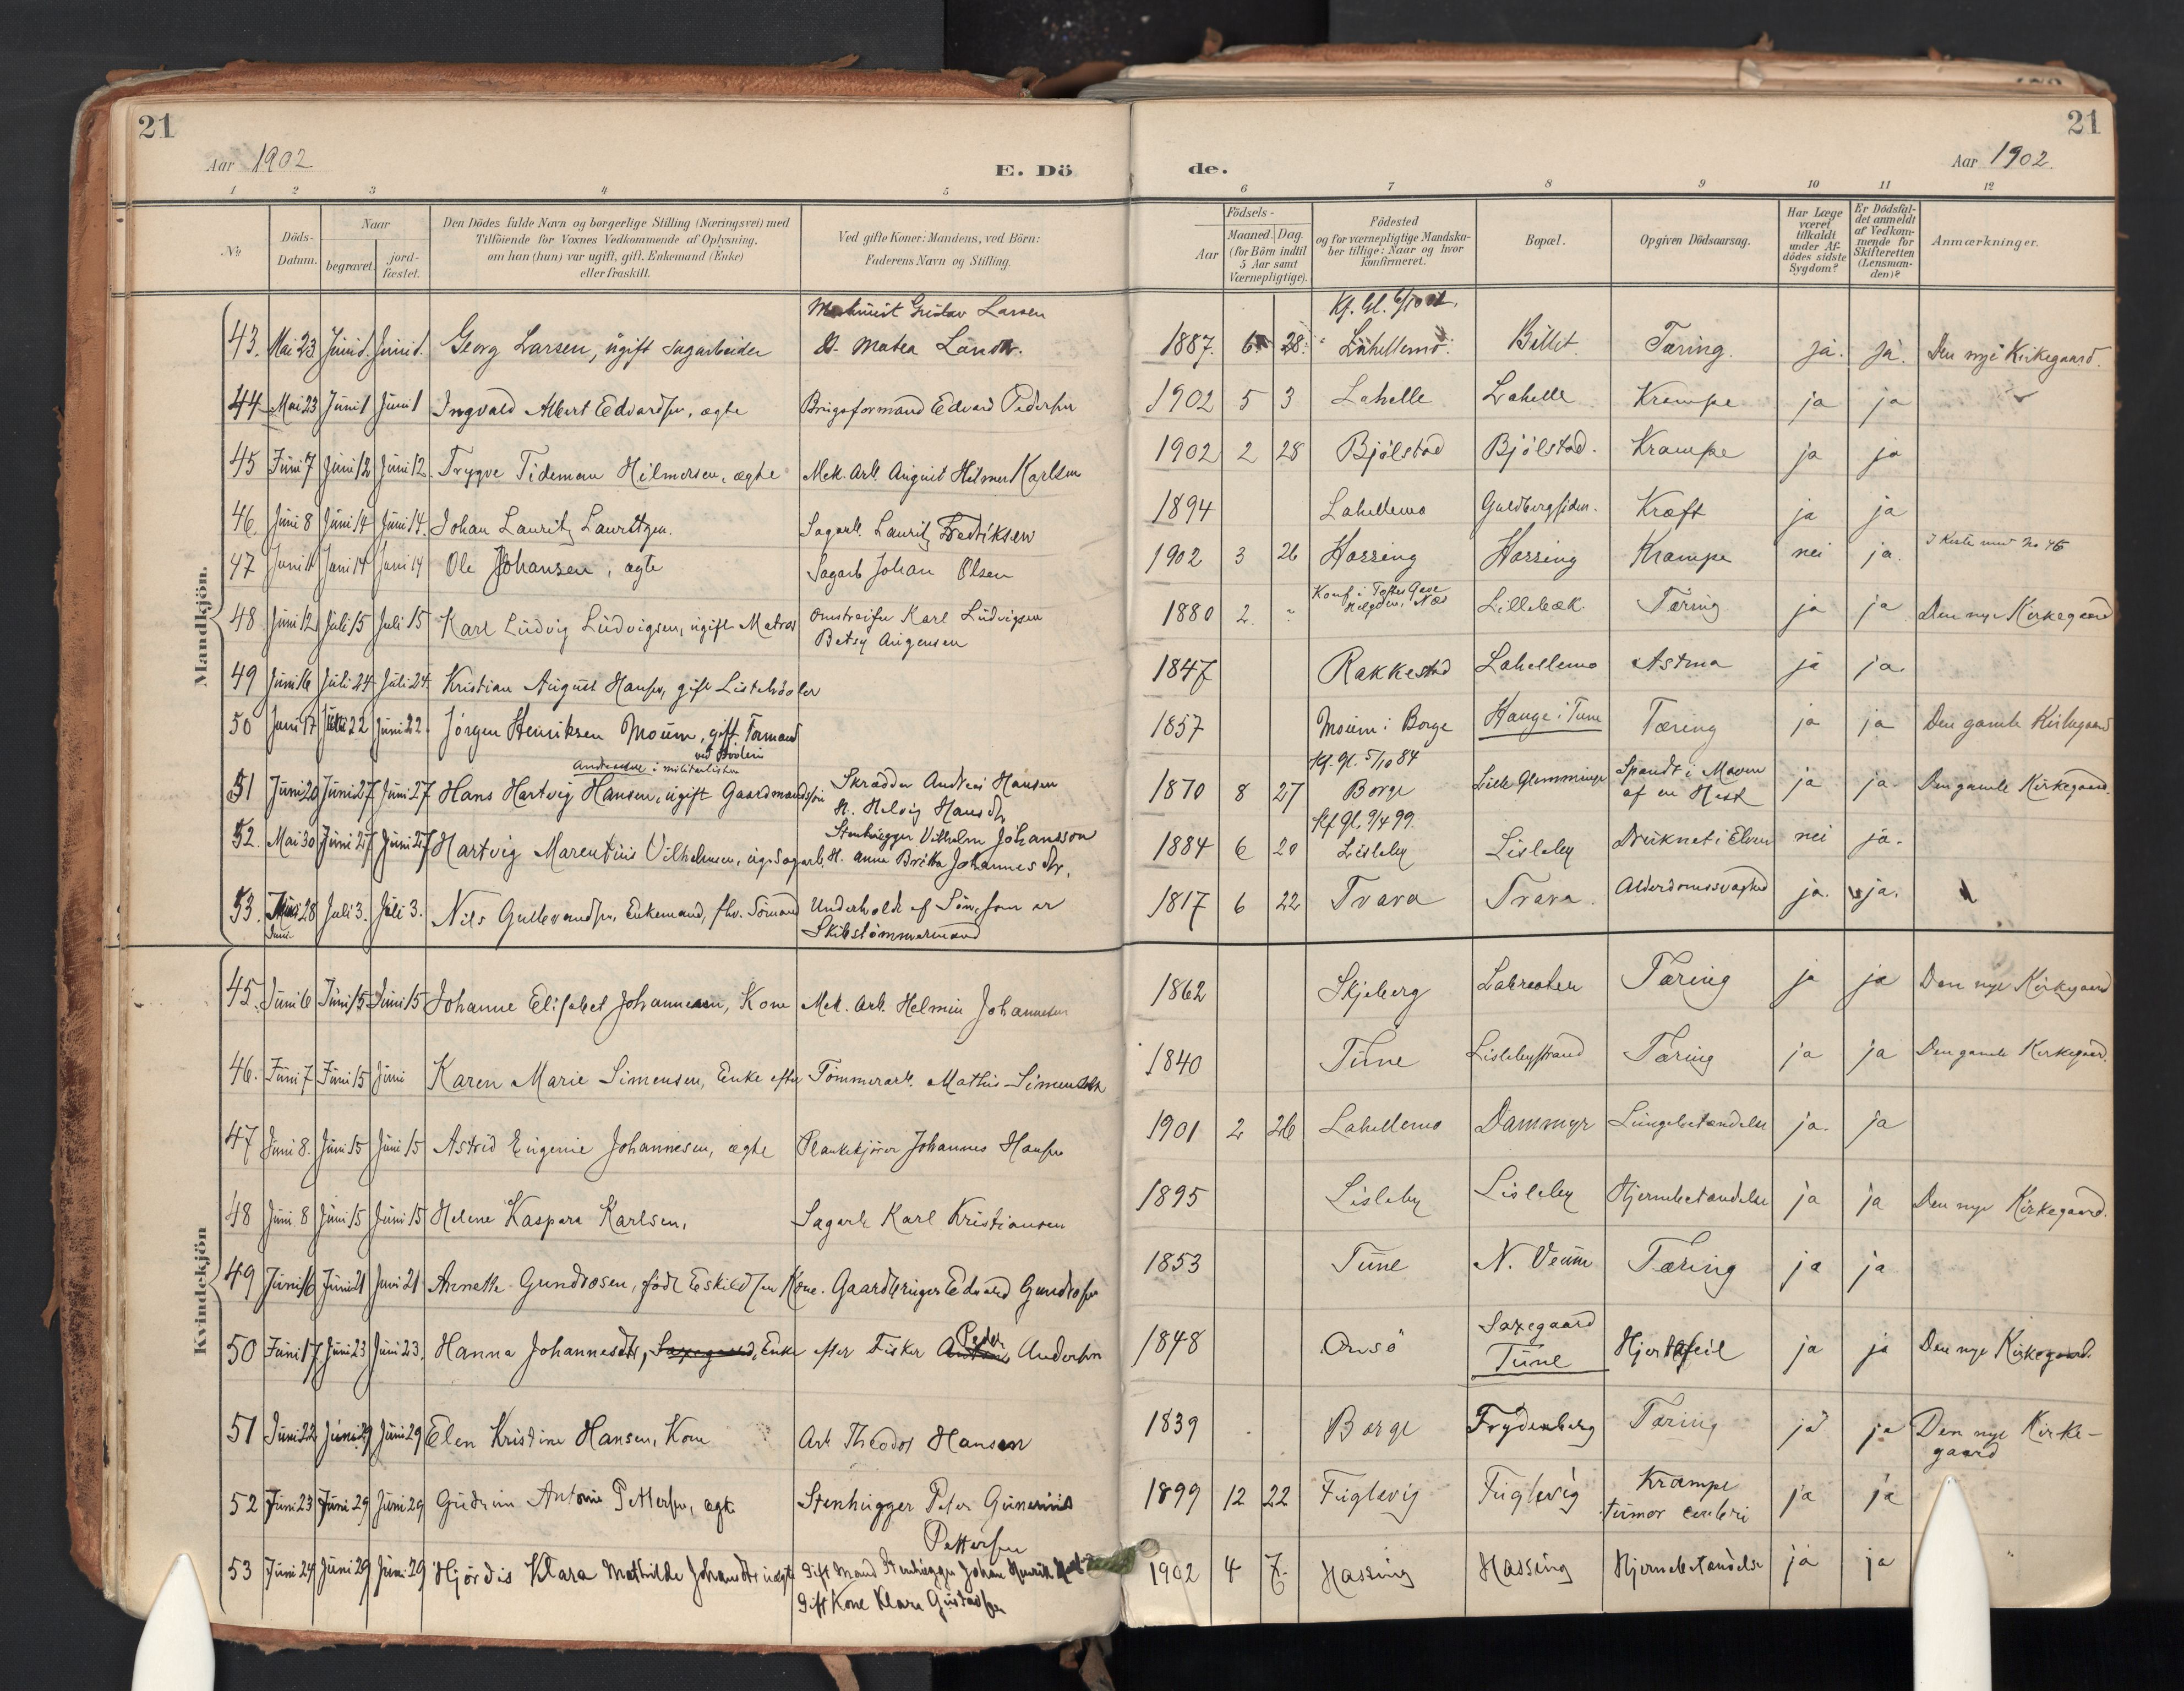 21
21
Aar 1902
E. Döde.
Aar 1902.
1 2 3 4 5 6 7 8 9 10 11 12
No
Döds-Datum.
Naar
begravet.
jordfæstet.
Den Dödes fulde Navn og borgerlige Stilling (Næringsvei) med
Tilföiende for Voxnes Vedkommende af Oplysning,
om han (hun) var ugift, gift, Enkemand (Enke)
eller fraskilt.
Ved gifte Koner: Mandens, ved Börn:
Faderens Navn og Stilling.
Födsels-
Aar
Maaned. Dag
(for Börn indtil
5 Aar samt
Værnepligtige).
Födested
og for værnepligtige Mandskaber tillige: Naar og hvor
konfirmeret.
Bopæl.
Opgiven Dödsaarsag.
Har Læge
været
tilkaldt
under Afdödes sidste
Sygdom?
Er Dödsfaldet anmeldt
af Vedkommende for
Skifteretten
(Lensmanden)?
Anmærkninger.
Mandkjön.
Gustav Larsen
43. Mai 23 Juni 1. Juni 1. Georg Larsen, ugift Sagarbeider Matea 1887. 6 28. Lahellemo Tæring. ja. ja. Den nye Kirkegaard.
44 Mai 23 Juni 1 Juni 1 Ingvald Albert Edvardsen, ægte Brugsformand Edvard Pedersen 1902 5 3 Lahelle Lahelle Krampe ja ja
45 Juni 7 Juni 12 Juni 12. Trygve Tideman Hilmersen, ægte Mek. Arb. August Hilmer Karlsen 1902 2 28 Bjölstad Bjölstad. Krampe ja ja
46. Juni 8 Juni 14 Juni 14. Johan Lauritz Lauritzen. Sagarb. Lauritz Fredriksen 1894 Lahellemo Guldbergsiden. Kræft ja ja
47 Juni Juni 14 Juni 14 Ole Johansen, ægte Sagarb Johan Olsen 1902 3 26 Hassing Hassing Krampe nei ja. I Kiste med No 46
48 Juni 12 Juli 15 Juli 15 Karl Ludvig Ludvigsen, ugift Matros Omstreifer Karl Ludvigsen 1880 2. Konf. i Toftes Gave Lillebæk. Tæring ja ja Den nye Kirkegaard
Betsy
49 Juni 16 Juli 24 Juli 24 Kristian August Hansen, gift 1847 Rakkestad Lahellemo Astma ja ja.
50 Juni 17 Juni 22 Juni 22. Jörgen Henriksen Moum, gift Formand 1857 Moum i Borge Hauge i Tune Tæring ja ja Den gamle Kirkegaard
Andreassen i militærlisten
Kf. Gl. 5/10 84
51 Juni 20 Juni 27 Juni 27 Hans Hartvig Hansen, ugift Gaardmandssön Skrædder Andreas Hansen 1870 8 27 Borge Lille Glemminge Spændt i Maven ja ja Den gamle Kirkegaard.
H. Helvig Hansdtr. af en Hest
Stenhugger Vilhelm Johansson
Kf Gl. 9/4 99.
52. Mai 30 Juni 27 Juni 27 Hartvig Marentius Vilhelmsen, ug. Sagarb. H. Anna Britta Johannesdtr. 1884 6 20 Lisleby Lisleby Druknet i Elven nei ja.
53. Juni 28 Juli 3. Juli 3. Nils Gullevandsen, Enkemand, fhv. Sömand Underholdt af Sön, som er 1817 6 22 Trara Trara. Alderdomssvaghed ja. ja.
Juni
Skibstömmermand
Kvindekjön
45. Juni 6 Juni 15 Juni 15 Johanne Elisabet Johannesen, Kone Mek. Arb. Helmin Johannesen 1862 Skjeberg Labraaten Tæring ja ja Den nye Kirkegaard
46. Juni 7 Juni 15 Juni Karen Marie Simensen, Enke efter Tömmerarb. Mathis Simensen 1840 Tune Lislebystrand Tæring ja ja Den gamle Kirkegaard.
47 Juni 8. Juni 15 Juni 15 Astrid Eugenie Johannesen, ægte Plankekjörer Johannes Hansen 1901 2 26 Lahellemo Dammyr Lungebetændelse ja. ja
48 Juni 8 Juni 15 Juni 15 Helene Kaspara Karlsen, Sagarb. Karl Kristiansen 1895 Lisleby Lisleby Hjernebetændelse ja ja Den nye Kirkegaard.
49 Juni 16 Juni 21 Juni 21 Annette Gundrosen, född Eskildsen Kone. Gaardbruger Edvard Gundrosen 1853 Tune N. Veum Tæring ja ja
50 Juni 17 Juni 23 Juni 23. Hanna Johannesdtr, Saxegaard, Enke efter Fisker Peder Andersen 1848 Onsö Saxegaard Hjertefeil ja ja Den nye Kirkegaard.
Tune
51 Juni 22 Juni 29 Juni 29 Elen Kristine Hansen, Kone Arb. Theodor Hansen 1839 Borge Frydenberg Tæring ja ja Den nye Kirkegaard
52 Juni 23 Juni 29 Juni 29 Gudrun Antonie Pettersen, ægte Stenhugger Peter Gunerius 1899 12 22 Fuglevig Fuglevig Krampe ja ja
Pettersen tumor cerebri
53 Juni 24 Juni 29 Juni 29 Hjördis Klara Mathilde Johansdtr uægte Gift Mand Stenhugger Johan Henrik 1902 4 7. Hassing Hassing Hjernebetændelse ja ja "
Gift Kone Klara Gustavsen